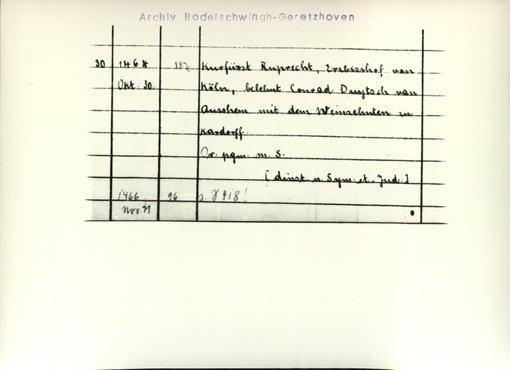 Archiv Bodelschwingh-Geretzhoven
20 1464 Kurfürst Ruprecht, Erzbischof von
Okt. 20. Köln, belehnt Conrad Duytsch van
Auschem mit dem Weinzehnten zu
Kardorff.
Or. pgm. m. S.
[dinst. n. Sym. et. Jud.]
1466 96
Nov. 21